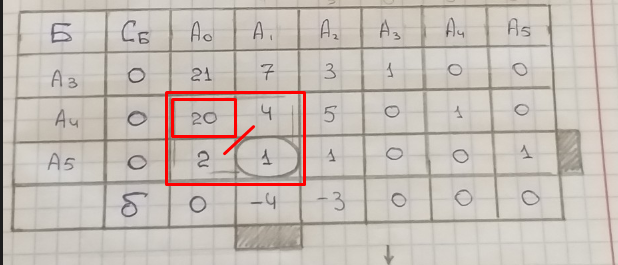 Б Сб А₀ А₁ А₂ А₃ А₄ А₅
А₃ 0 21 7 3 1 0 0
А₄ 0 20 4 5 0 1 0
А₅ 0 2 1 1 0 0 1
δ 0 -4 -3 0 0 0